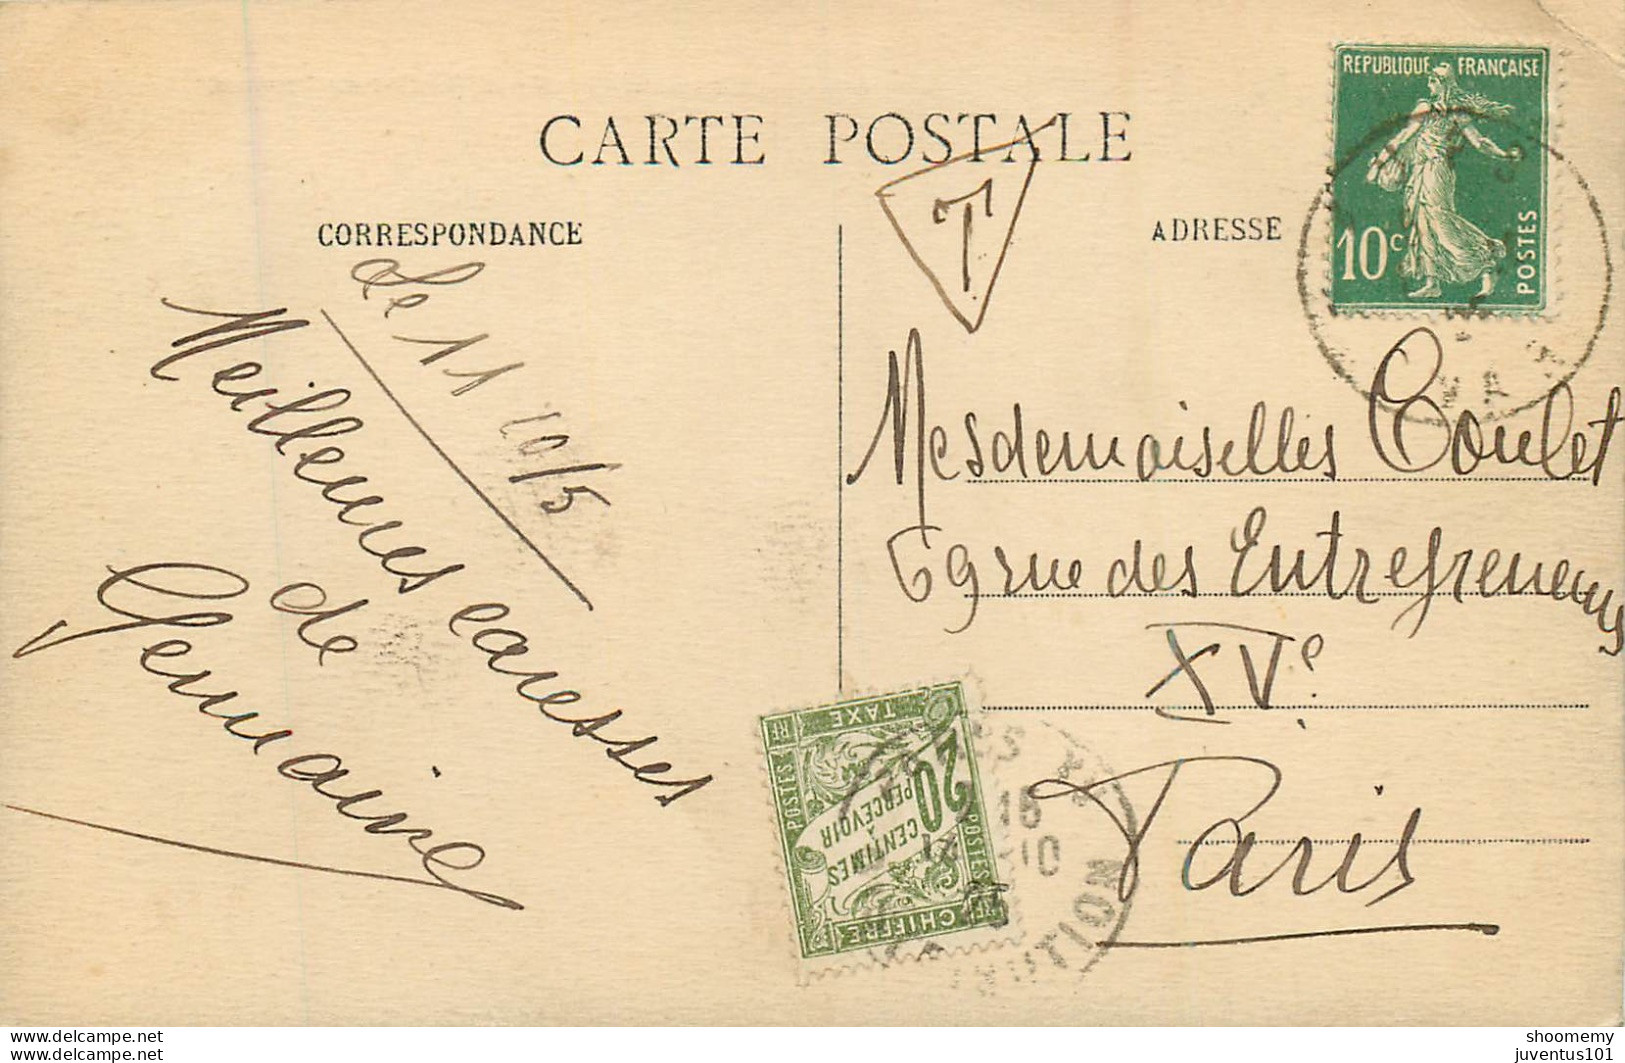 CARTE POSTALE
T
CORRESPONDANCE
ADRESSE
REPUBLIQUE FRANÇAISE
10c
POSTES
VAR
Le 11 10/5
Meilleures caresses
de
Germaine
Mesdemoiselles Coulet
69 rue des Entrepreneurs
XVe
Paris
CHIFFRE TAXE
POSTES RF
20
CENTIMES
À
PERCEVOIR
POSTES RF
shoomemy
juventus101